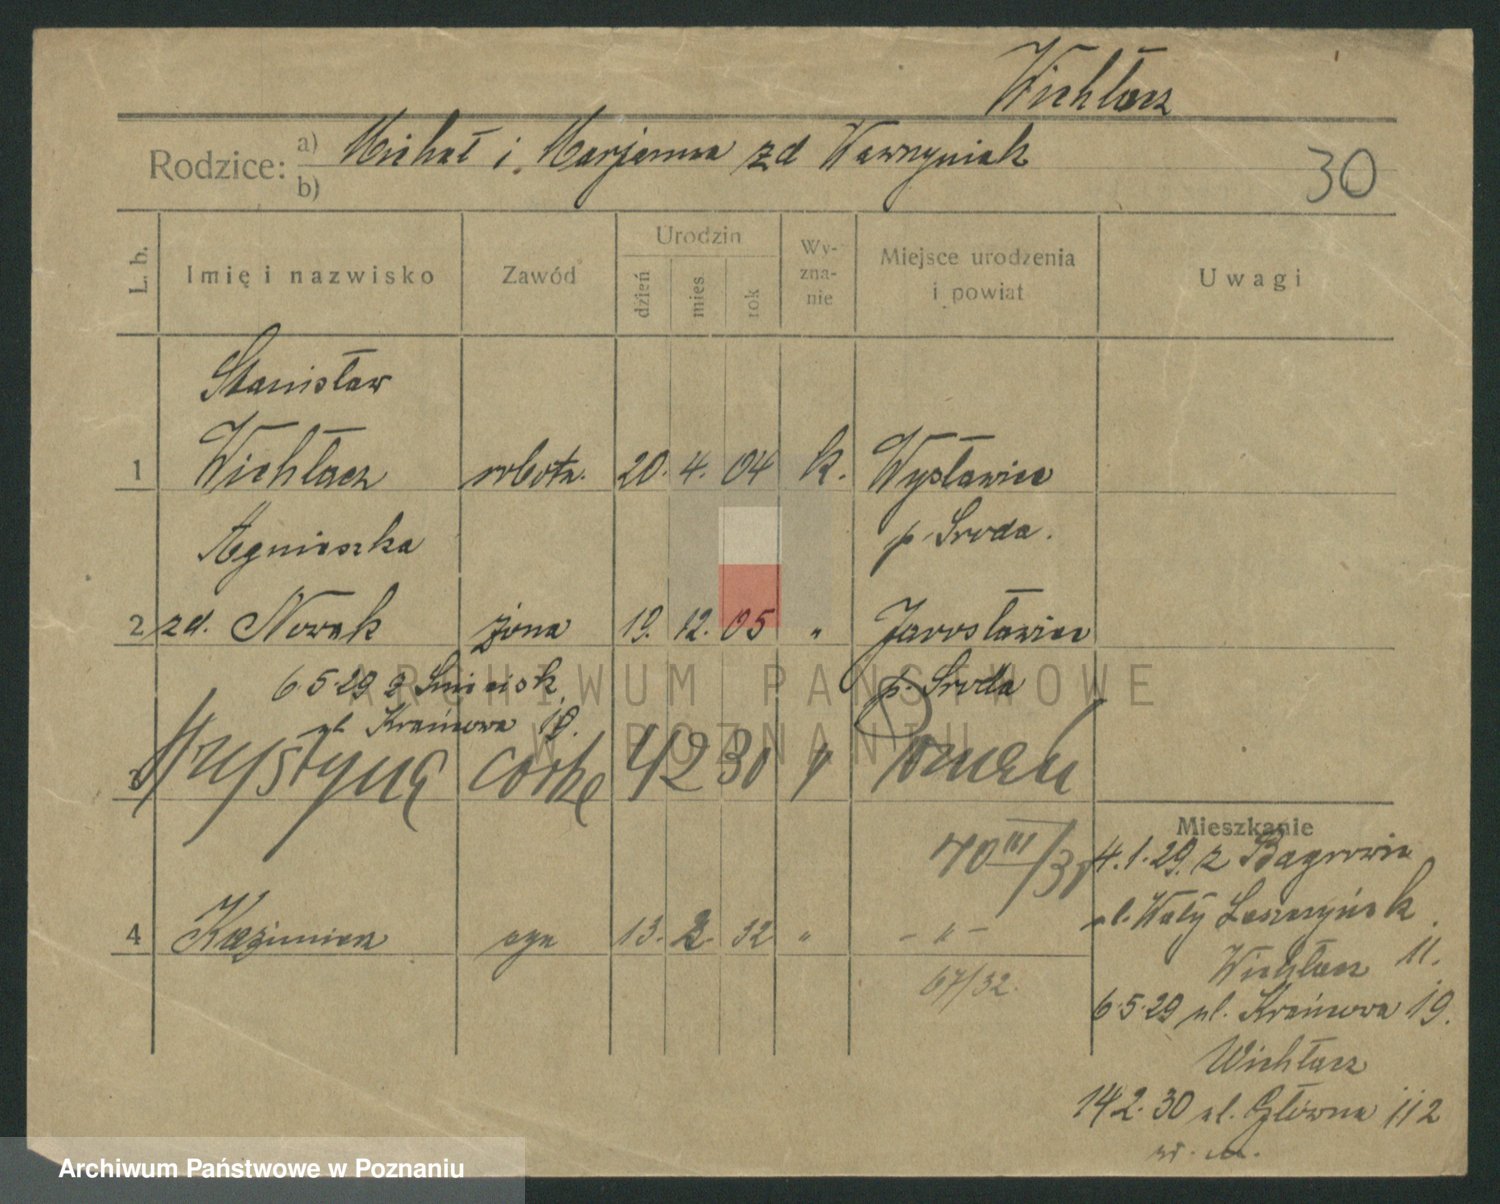 Wichłacz
Rodzice: a) Michał i Marjanna zd Wawrzyniak
b)
30
L. b.
Imię i nazwisko
Zawód
Urodzin
dzień
mies
rok
Wy-
zna-
nie
Miejsce urodzenia
i powiat
Uwagi
Stanisław
1 Wichłacz robotn. 20. 4. 04 k. Wysławice
p. Sroda.
Agnieszka
2 zd. Nowak żona 19. 12. 05 " Jarosławiec
p. Sroda
6.5.29 z
ul. Krańcowa 19.
3 Krystyna córka 4 2 30 " Poznań
Mieszkanie
4.1.29. z
ul. Wały Leszczyńsk.
Wichłacz 11.
4 Kazimierz syn 13. 2. 32 " - " -
67/32.
6.5.29 ul. Krańcowa 19.
Wichłacz
14 2. 30 ul. Główna 112
ARCHIWUM PAŃSTWOWE
W POZNANIU
Archiwum Państwowe w Poznaniu